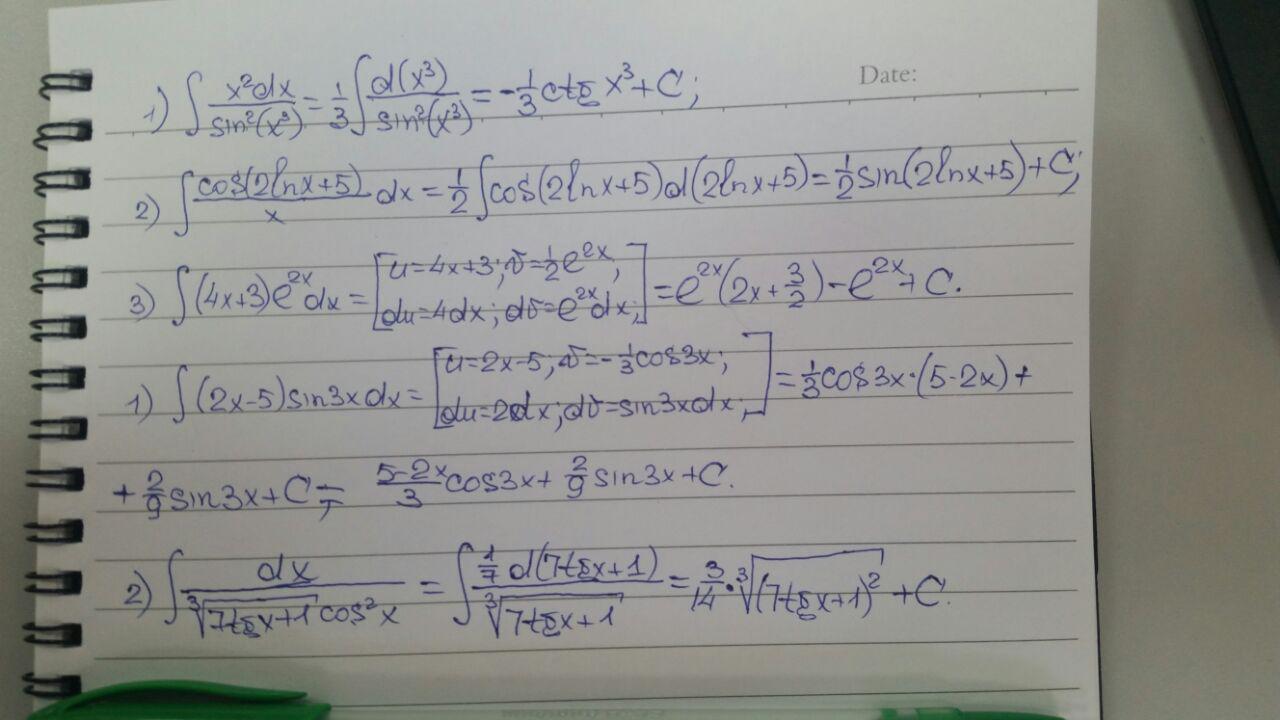 Date:
1) ∫ x²dx / sin²(x³) = 1/3 ∫ d(x³) / sin²(x³) = -1/3 ctg x³ + C;
2) ∫ cos(2lnx+5) / x dx = 1/2 ∫ cos(2lnx+5) d(2lnx+5) = 1/2 sin(2lnx+5) + C;
3) ∫ (4x+3)e^(2x) dx = [u=4x+3; v=1/2 e^(2x); du=4dx; dv=e^(2x)dx;] = e^(2x)(2x + 3/2) - e^(2x) + C.
1) ∫ (2x-5) sin3x dx = [u=2x-5; v=-1/3 cos3x; du=2dx; dv=sin3xdx;] = 1/3 cos3x·(5-2x) +
+ 2/9 sin3x + C = (5-2x)/3 cos3x + 2/9 sin3x + C.
2) ∫ dx / (∛(7tgx+1) cos²x) = ∫ 1/7 d(7tgx+1) / ∛(7tgx+1) = 3/14 · ∛((7tgx+1)²) + C.